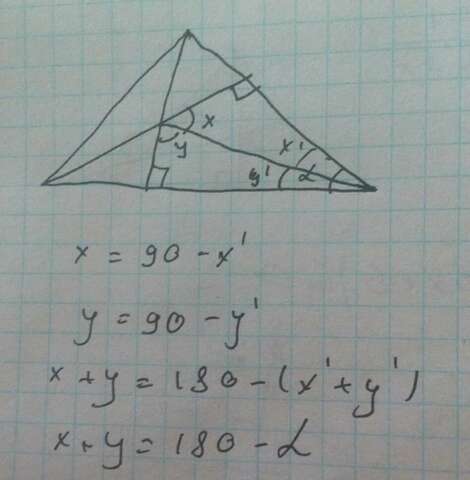 x
y
x'
y'
α
x = 90 - x'
y = 90 - y'
x + y = 180 - (x' + y')
x + y = 180 - α